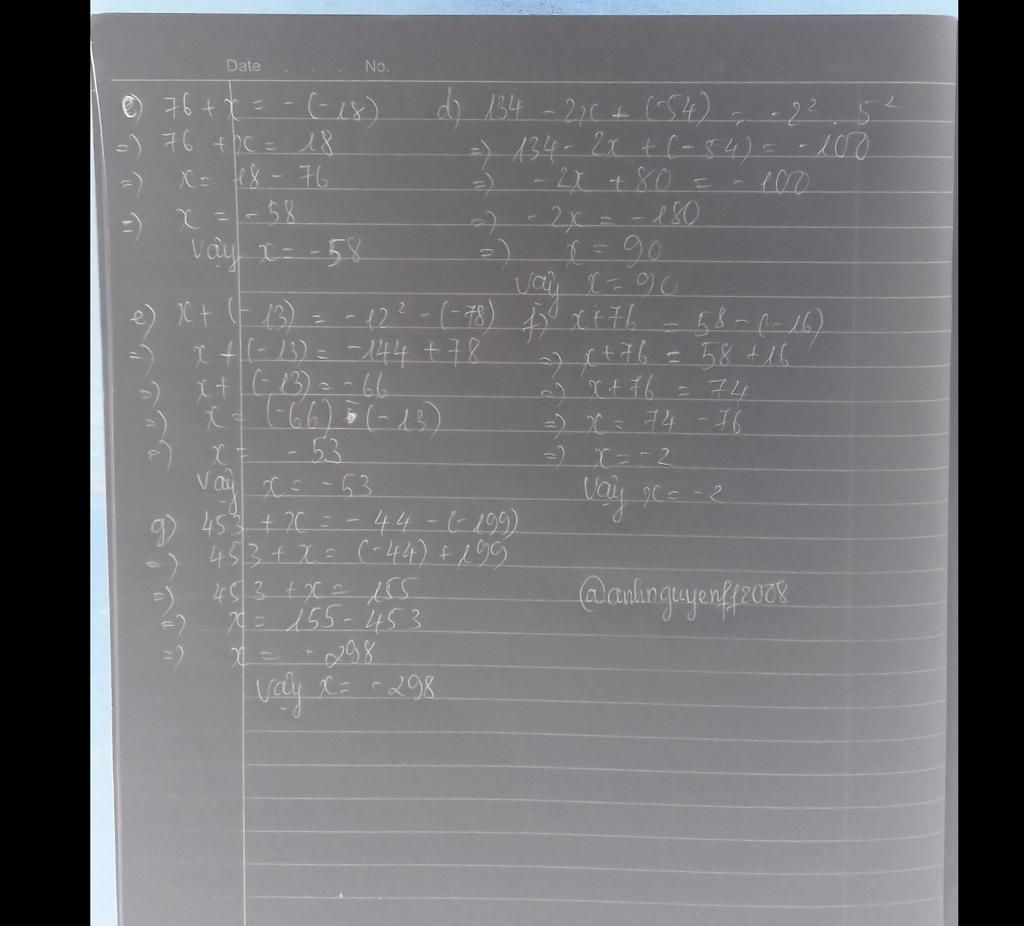 Date . . . No.
c) 76 + x = - (-18)
=) 76 + x = 18
=) x = 18 - 76
=) x = -58
Vậy x = -58
d) 134 - 2x + (-54) = -2² . 5²
=) 134 - 2x + (-54) = -100
=) -2x + 80 = -100
=) -2x = -180
=) x = 90
Vậy x = 90
e) x + (-13) = -12² - (-78)
=) x + (-13) = -144 + 78
=) x + (-13) = -66
=) x = (-66) - (-13)
=) x = -53
Vậy x = -53
f) x + 76 = 58 - (-16)
=) x + 76 = 58 + 16
=) x + 76 = 74
=) x = 74 - 76
=) x = -2
Vậy x = -2
g) 453 + x = - 44 - (-199)
=) 453 + x = (-44) + 199
=) 453 + x = 155
=) x = 155 - 453
=) x = -298
Vậy x = -298
@anhnguyenff2008